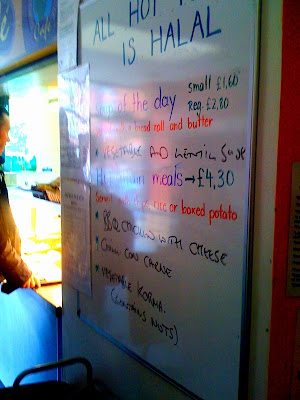 ALL HOT
IS HALAL
of the day small £1,60
Reg. £2,80
bread roll and butter
• VEGETABLE AND LENTIL
main meals → £4,30
rice or boxed potato
• BBQ CHICKEN WITH CHEESE
• CHILLI CON CARNE
• VEGETABLE KORMA.
(CONTAINS NUTS)